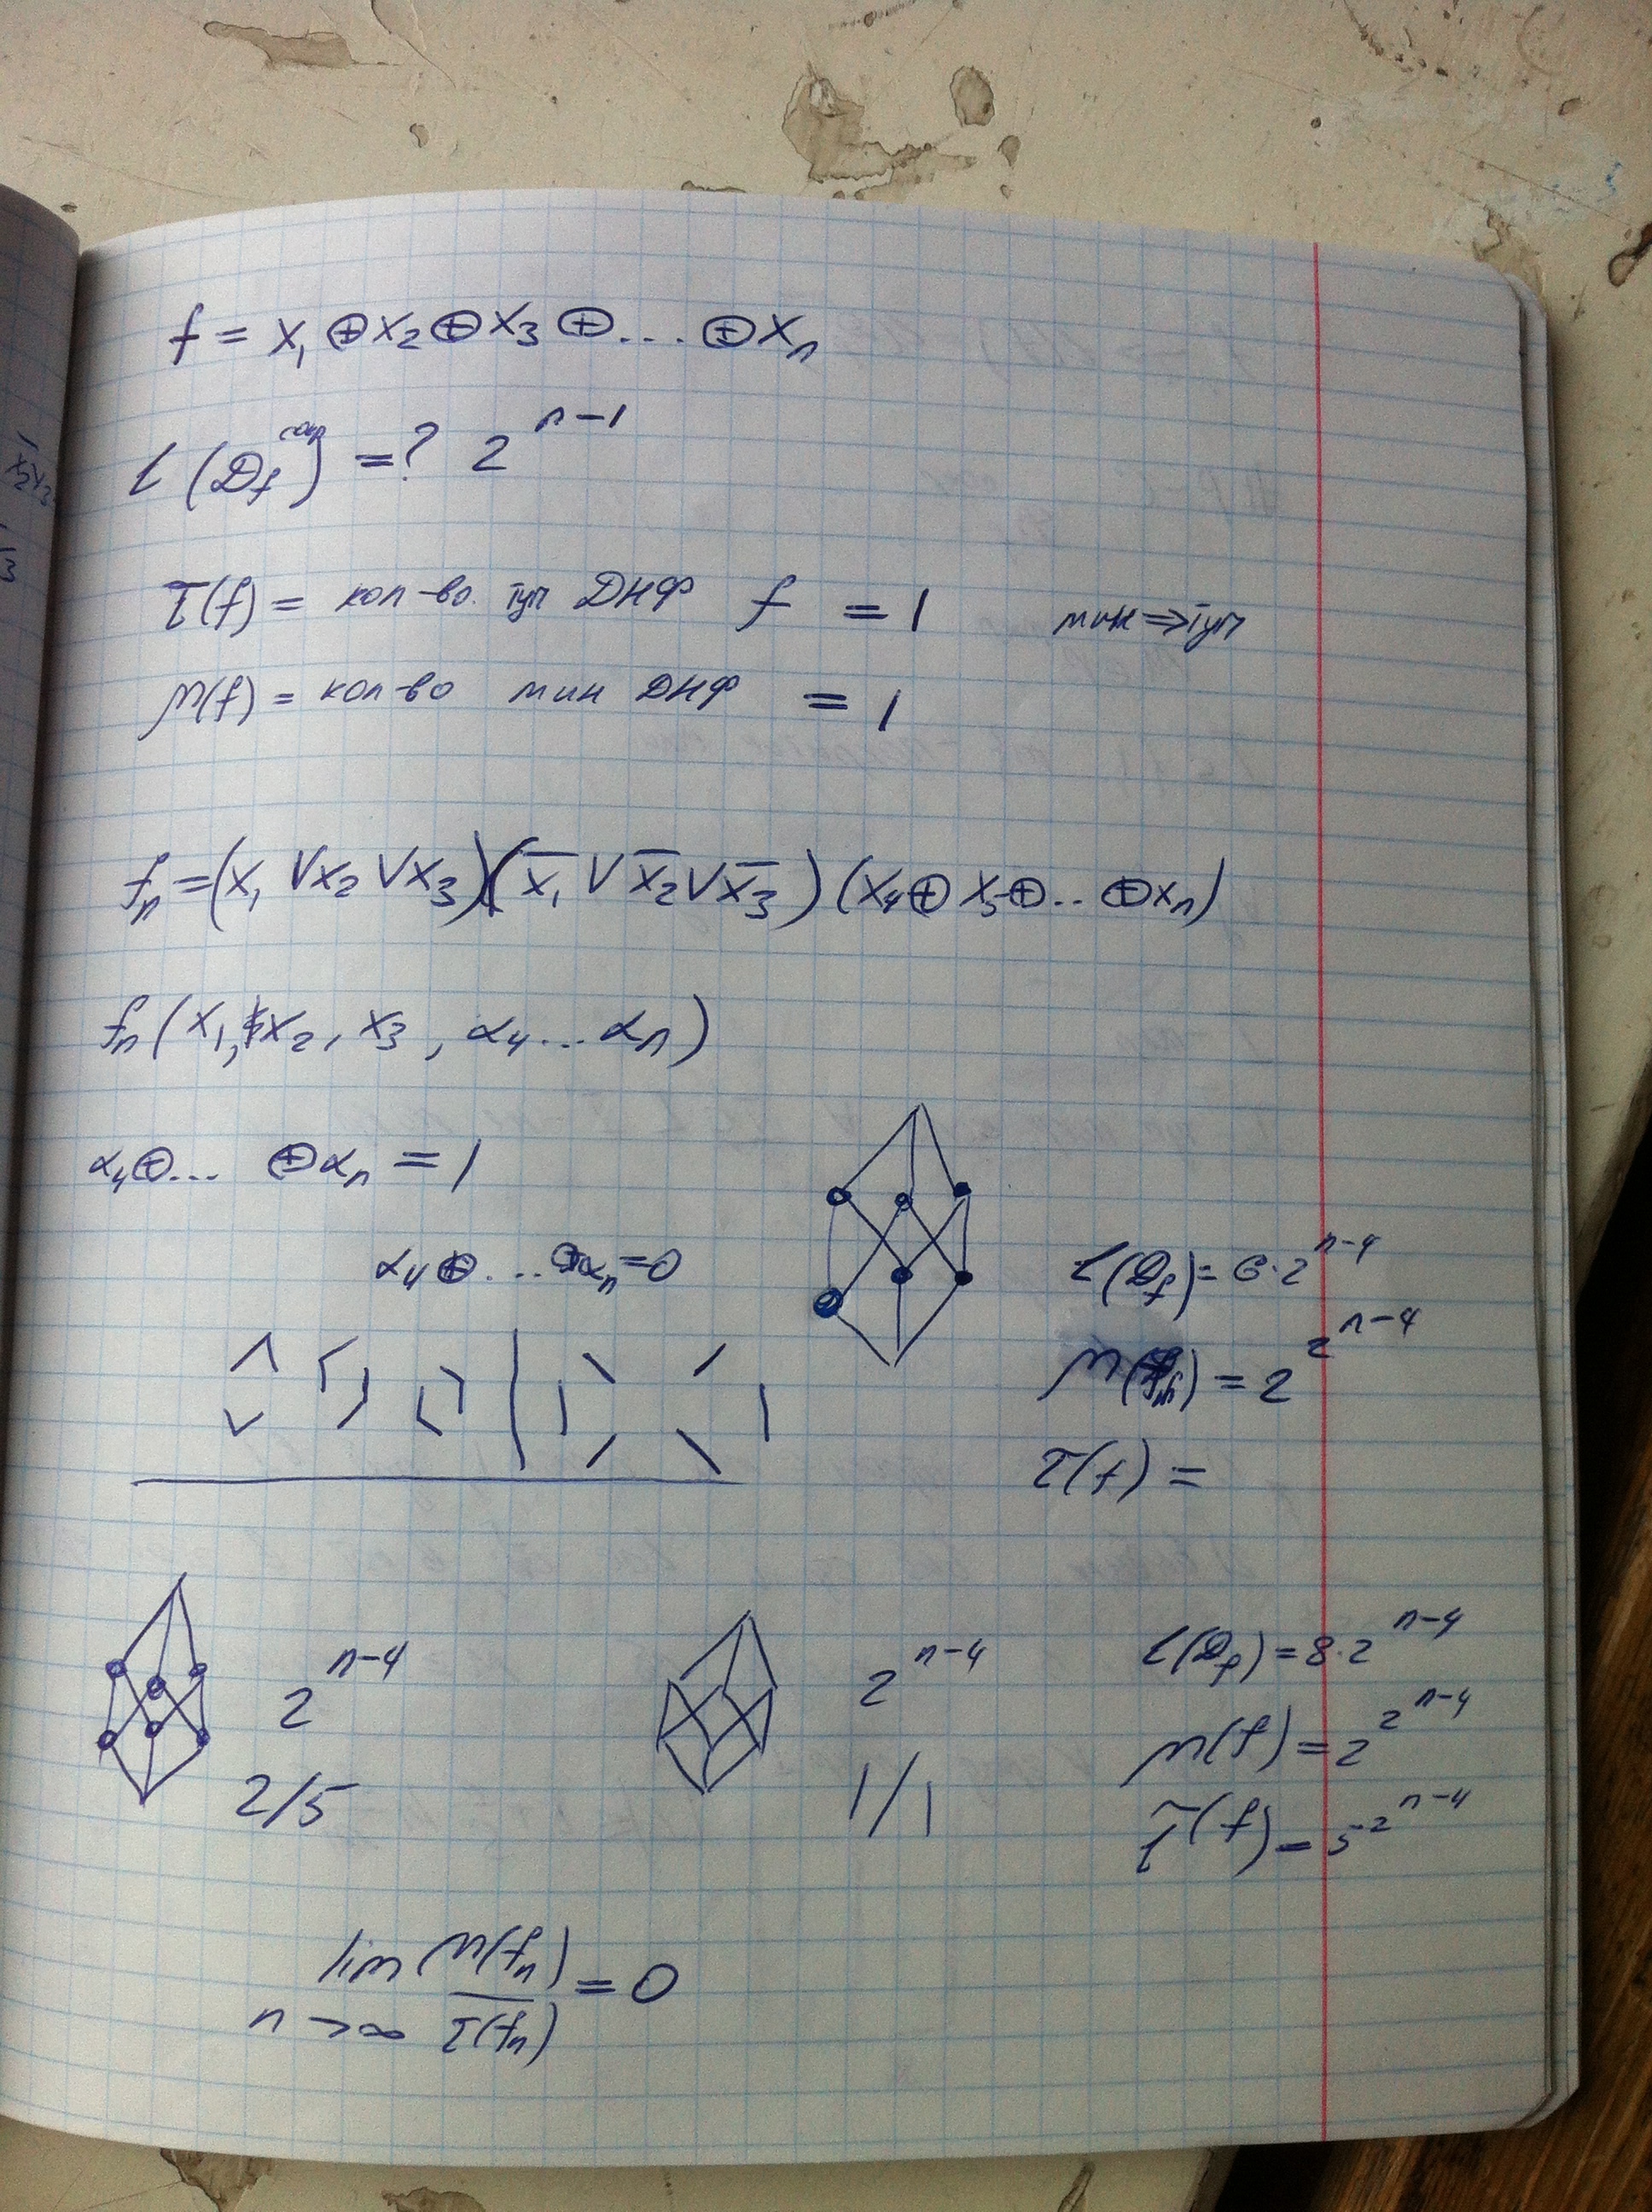 f = x₁ ⊕ x₂ ⊕ x₃ ⊕ ... ⊕ xₙ
l(D_f^{сокр}) = ? 2^{n-1}
τ(f) = кол-во туп ДНФ f = 1 мин ⇒ туп
μ(f) = кол-во мин ДНФ = 1
fₙ = (x₁ ∨ x₂ ∨ x₃)(x̄₁ ∨ x̄₂ ∨ x̄₃)(x₄ ⊕ x₅ ⊕ ... ⊕ xₙ)
fₙ(x₁, x₂, x₃, α₄ ... αₙ)
α₄ ⊕ ... ⊕ αₙ = 1
α₄ ⊕ ... ⊕ αₙ = 0
l(D_f) = 6 · 2^{n-4}
μ(fₙ) = 2^{2^{n-4}}
τ(f) =
2^{n-4}
2/5
2^{n-4}
1/1
l(D_f) = 8 · 2^{n-4}
μ(f) = 2^{2^{n-4}}
τ(f) = 5^{2^{n-4}}
lim_{n→∞} μ(fₙ)/τ(fₙ) = 0